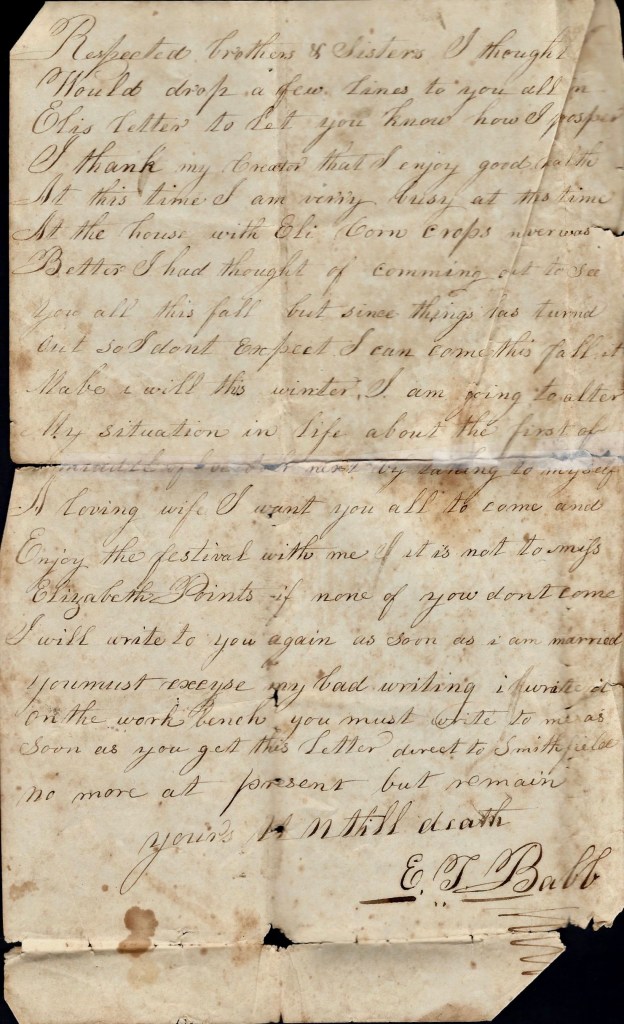 Respected brothers & Sisters I thought
Would drop a few lines to you all in
Elis letter to let you know how I prosper
I thank my Creator that I enjoy good health
At this time I am verry busy at this time
At the house with Eli Corn crops never was
Better I had thought of comming out to see
you all this fall but since things has turnd
out so I dont Expect I can come this fall it
Mabe i will this winter. I am going to alter
My situation in life about the first of
next by taking to myself
A loving wife I want you all to come and
Enjoy the festival with me it is not to miss
Elizabeth Points if none of you dont come
I will write to you again as soon as i am married
you must excuse my bad writing i write it
on the work bench you must write to me as
soon as you get this letter direct to Smithfield
no more at present but remain
yours Untill death
E. T. Babb